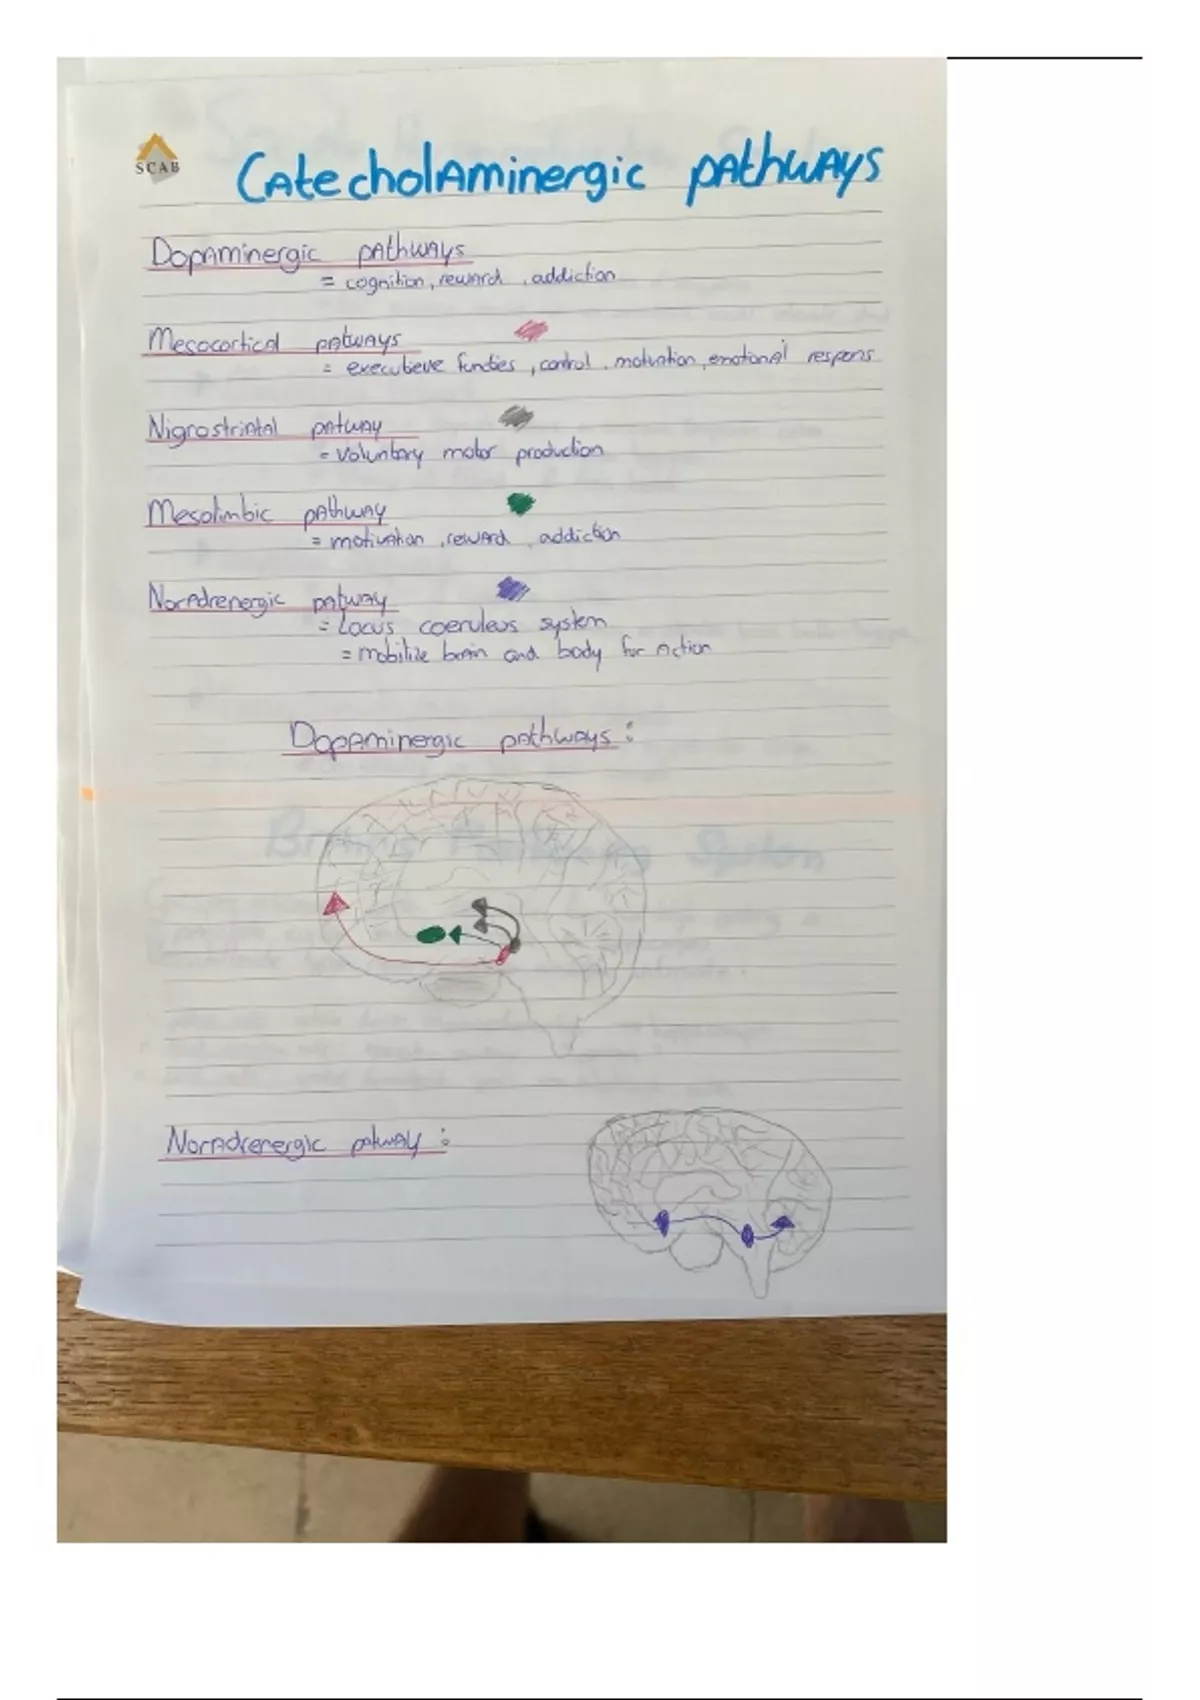 SCAB
Catecholaminergic pathways
Dopaminergic pathways
= cognition, reward, addiction
Mesocortical patways
= executieve functies, control, motivation, emotional respons
Nigrostriatal patway
= voluntary motor production
Mesolimbic pathway
= motivation, reward, addiction
Noradrenergic patway
= Locus coeruleus system
= mobilize brain and body for action
Dopaminergic pathways:
Noradrenergic patway: